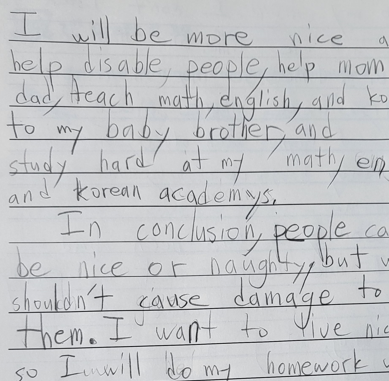 I will be more nice a
help disable, people, help mom
dad, teach math, english, and ko
to my baby brother, and
study hard at my math, en
and korean academys.
In conclusion, people ca
be nice or naughty, but w
shouldn't cause damage to
them. I want to live nic
so I will do my homework